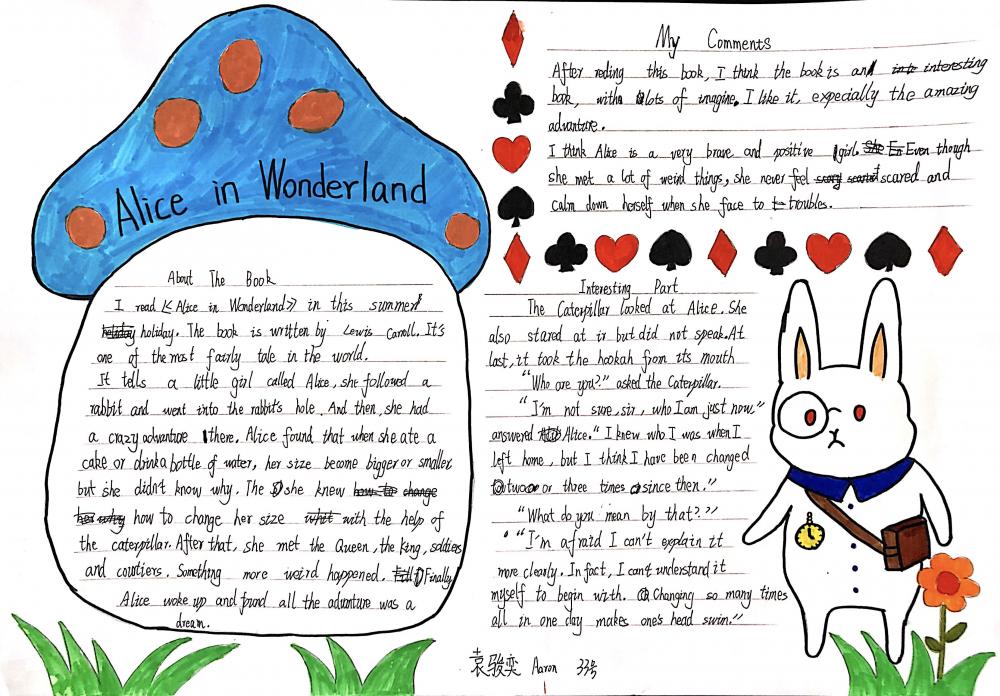 Alice in Wonderland
About The Book
I read 《Alice in Wonderland》 in this summer
holiday. The book is written by Lewis Carroll. It's
one of the most fairly tale in the world.
It tells a little girl called Alice, she followed a
rabbit and went into the rabbit's hole. And then, she had
a crazy advanture there. Alice found that when she ate a
cake or drink a bottle of water, her size become bigger or smaller
but she didn't know why. The she knew how to change
her why how to change her size with the help of
the caterpillar. After that, she met the Queen, the King, soldiers
and courtiers. Something more weird happened. Finally
Alice woke up and found all the advanture was a
dream.
My Comments
After reding this book, I think the book is an interesting
book, with lots of imagine. I like it, expecially the amazing
advanture.
I think Alice is a very brave and positive girl. She Even though
she met a lot of weird things, she never feel scared and
calm down herself when she face to troubles.
Interesting Part
The Caterpillar looked at Alice. She
also stared at it but did not speak. At
last, it took the hookah from its mouth
"Who are you?" asked the Caterpillar.
"I'm not sure, sir, who I am just now,"
answered Alice. "I knew who I was when I
left home, but I think I have been changed
two or three times since then."
"What do you mean by that?"
"I'm afraid I can't explain it
more clearly. In fact, I can't understand it
myself to begin with. Changing so many times
all in one day makes one's head swim."
袁骏奕 Aaron 33号